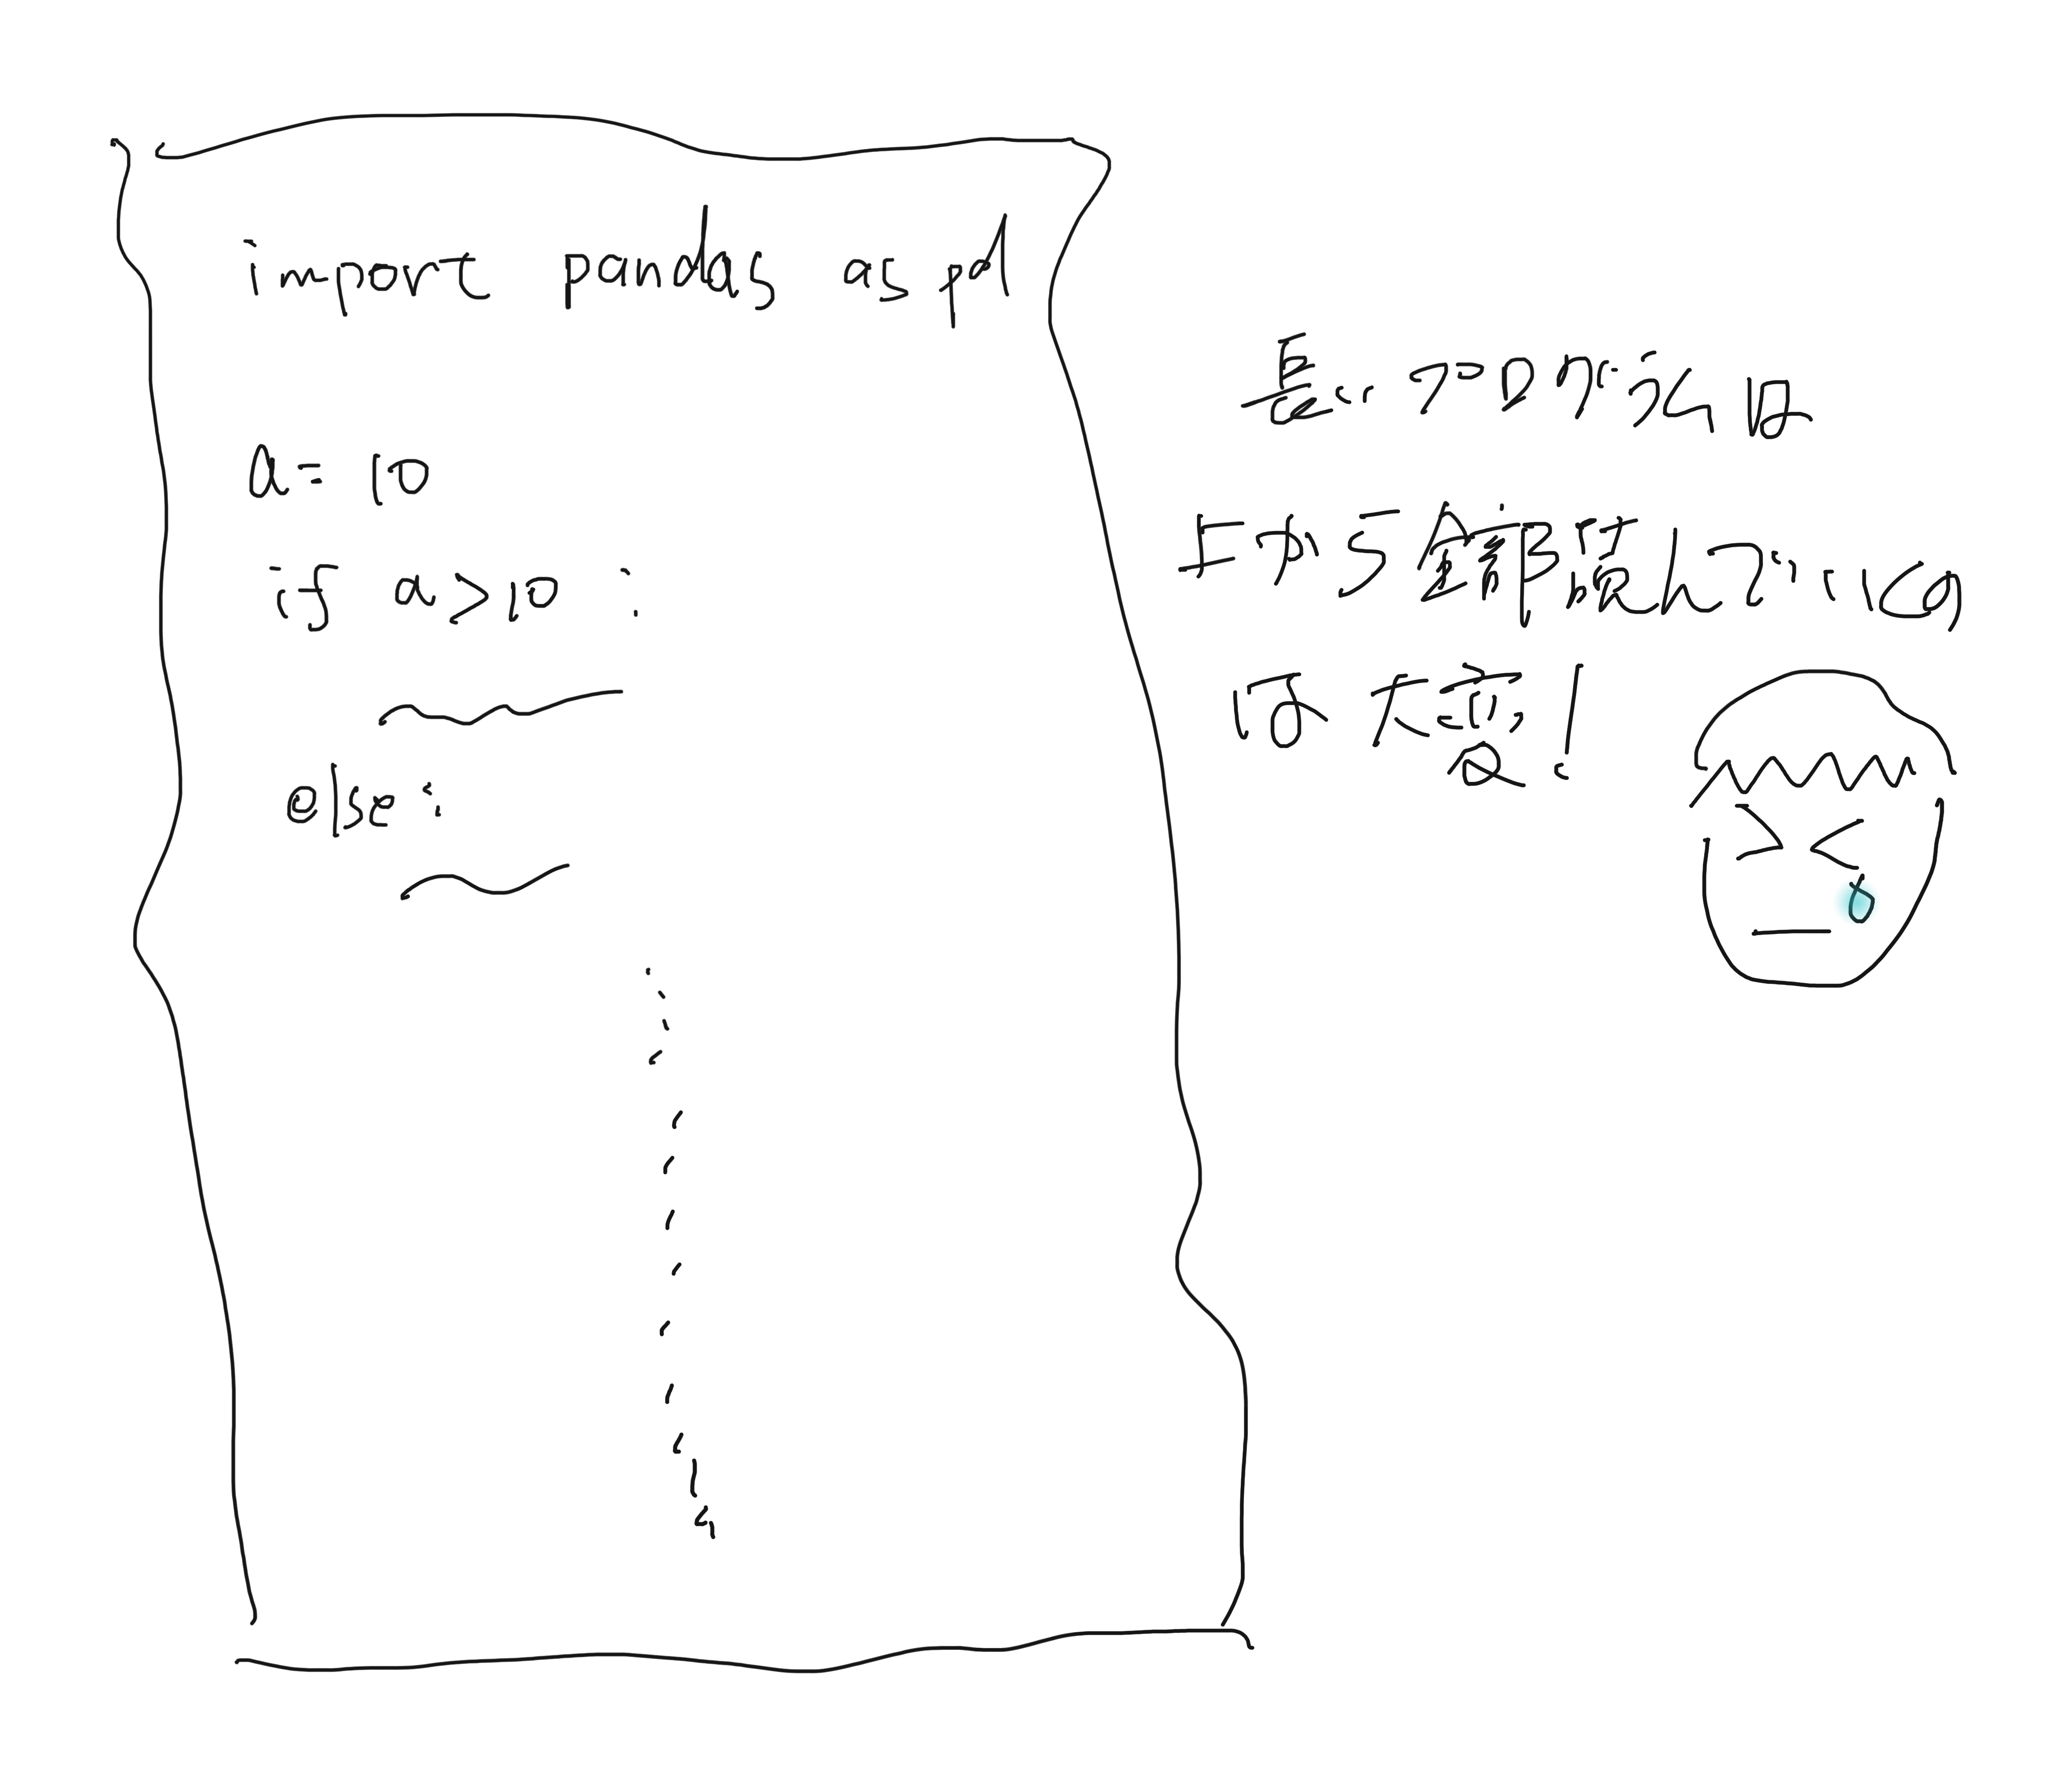 import pandas as pd
a = 10
if a > 10 :
else :
長いプログラムは
上から解読していくの
は大変!